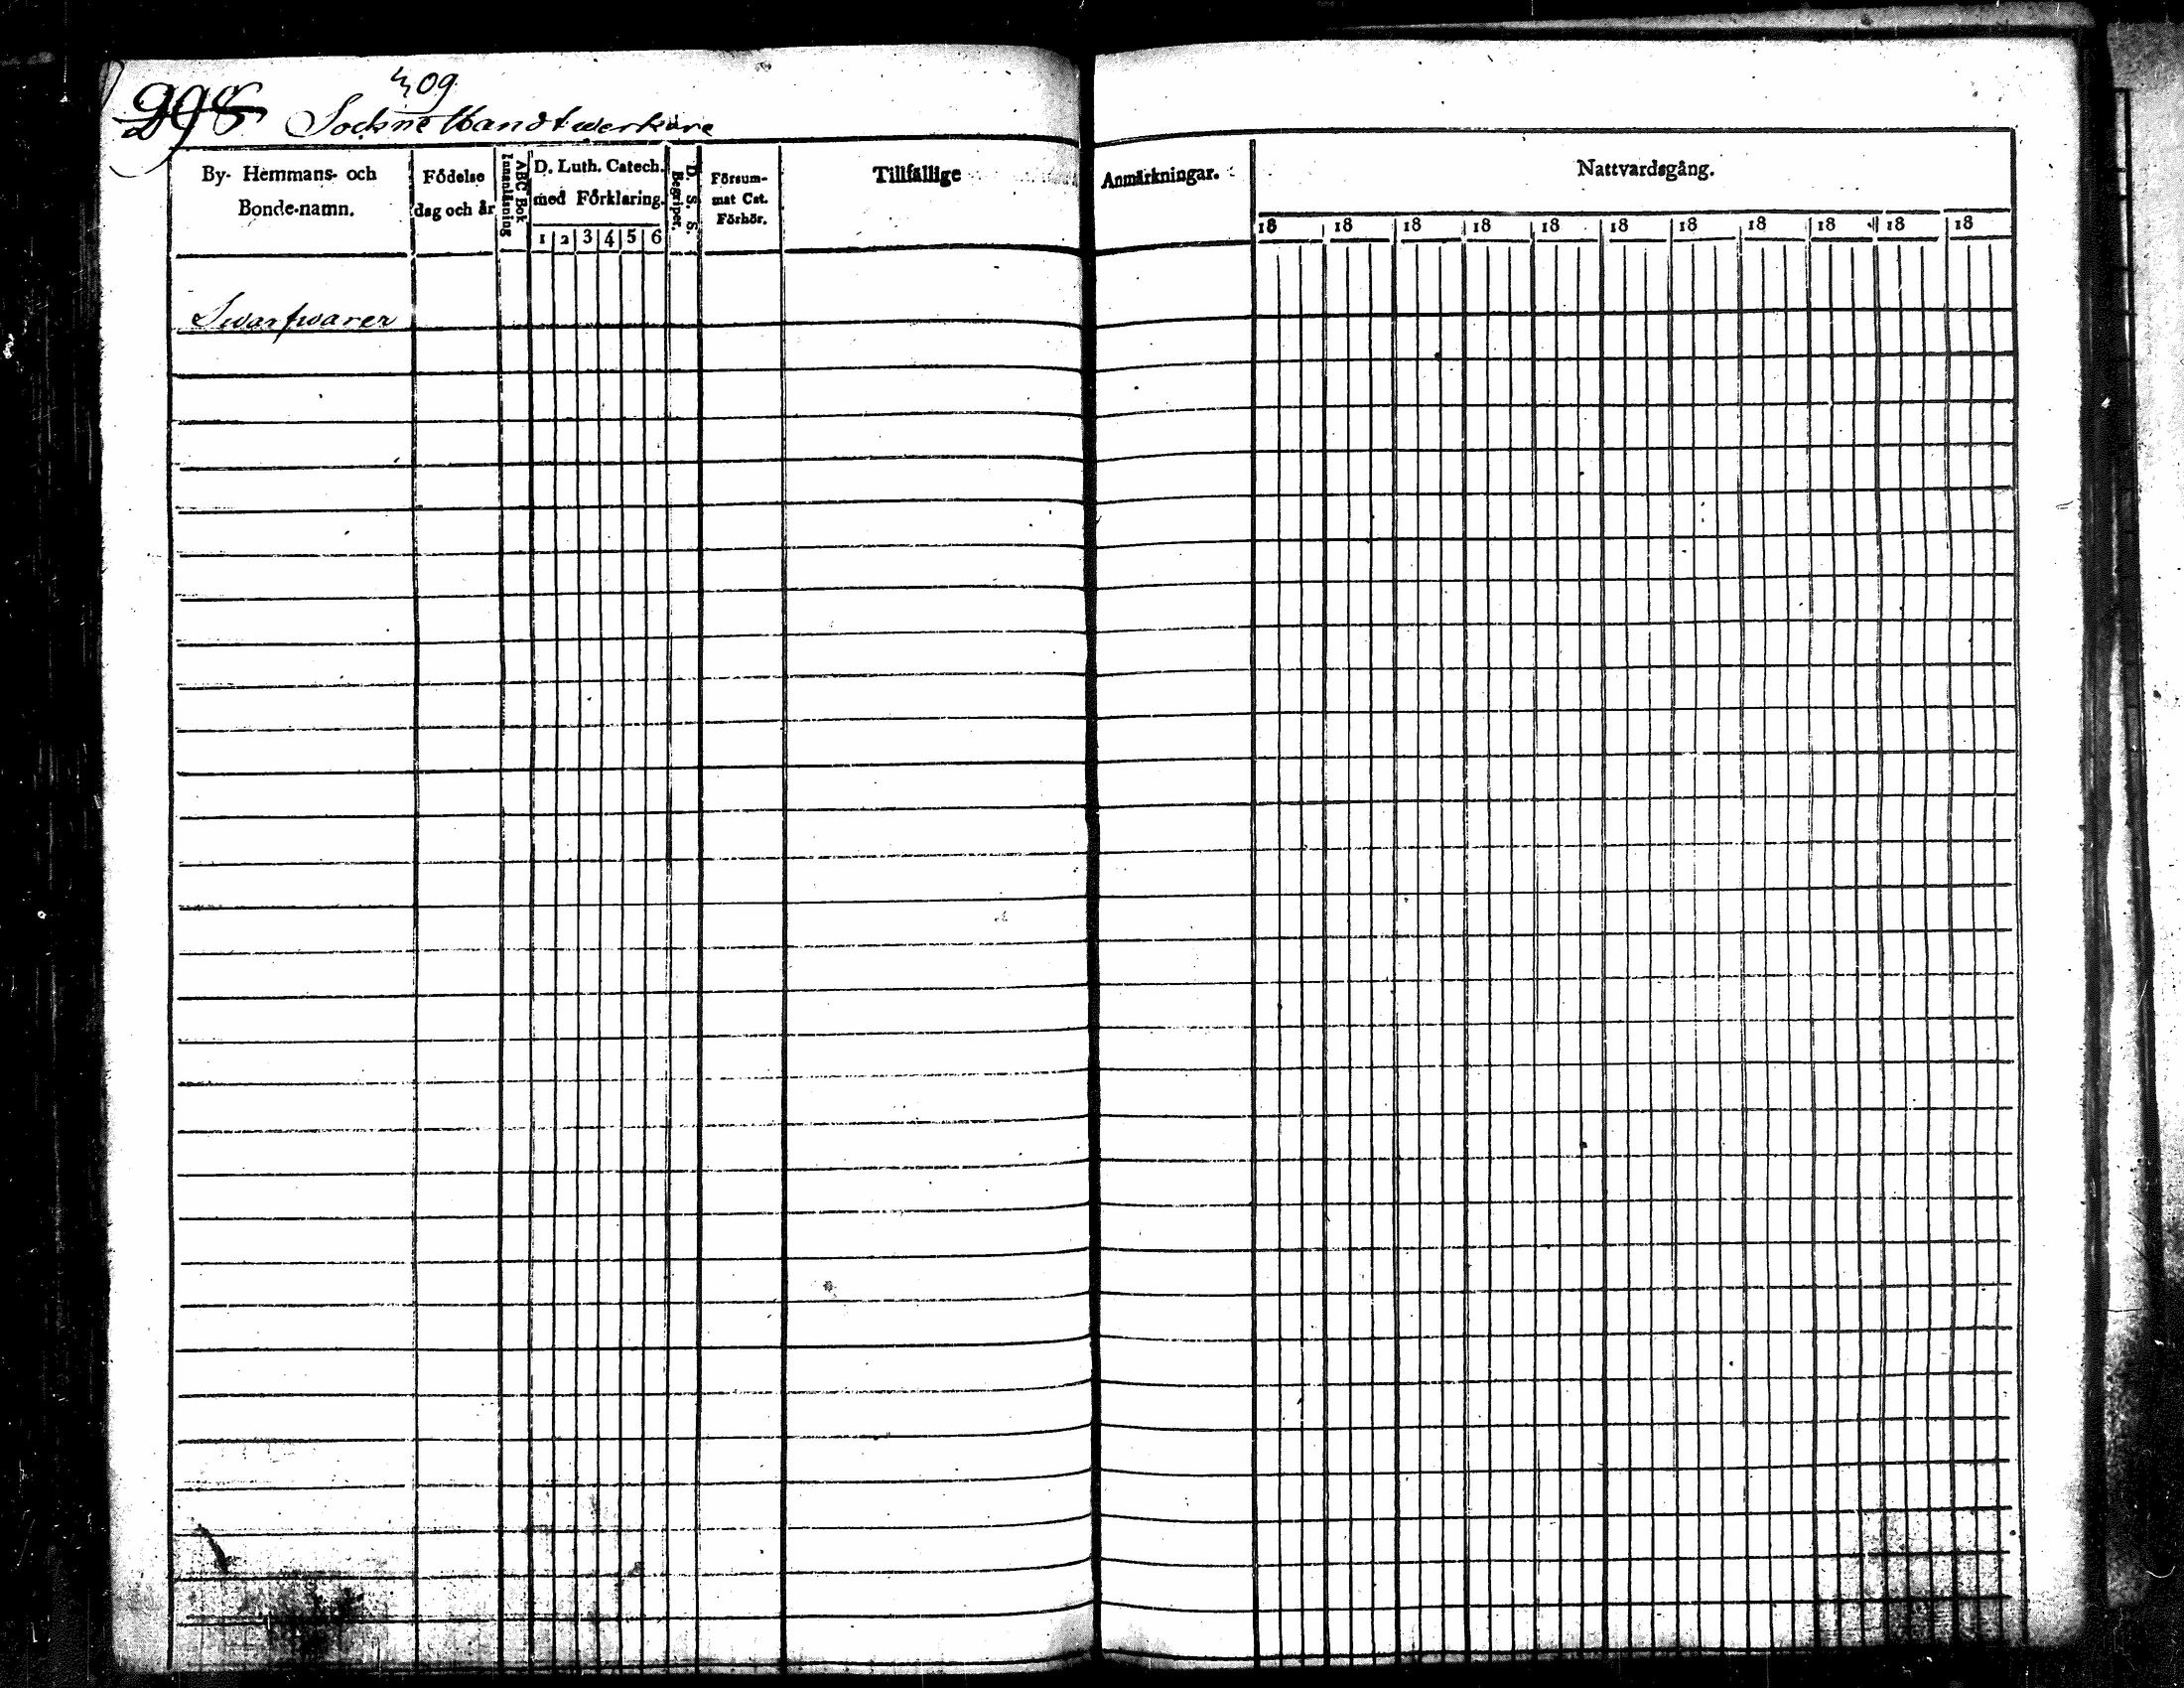 409
298
Sockne Handtwerkare
By- Hemmans- och
Bonde-namn.
Födelse
dag och år
ABC Bok
Innanläsning
D. Luth. Catech.
med Förklaring.
1 2 3 4 5 6
D. S. S.
Begriper.
Försum-
mat Cat.
Förhör.
Tillfällige
Anmärkningar.
Nattvardsgång.
18 18 18 18 18 18 18 18 18 18 18
Swarfwarer